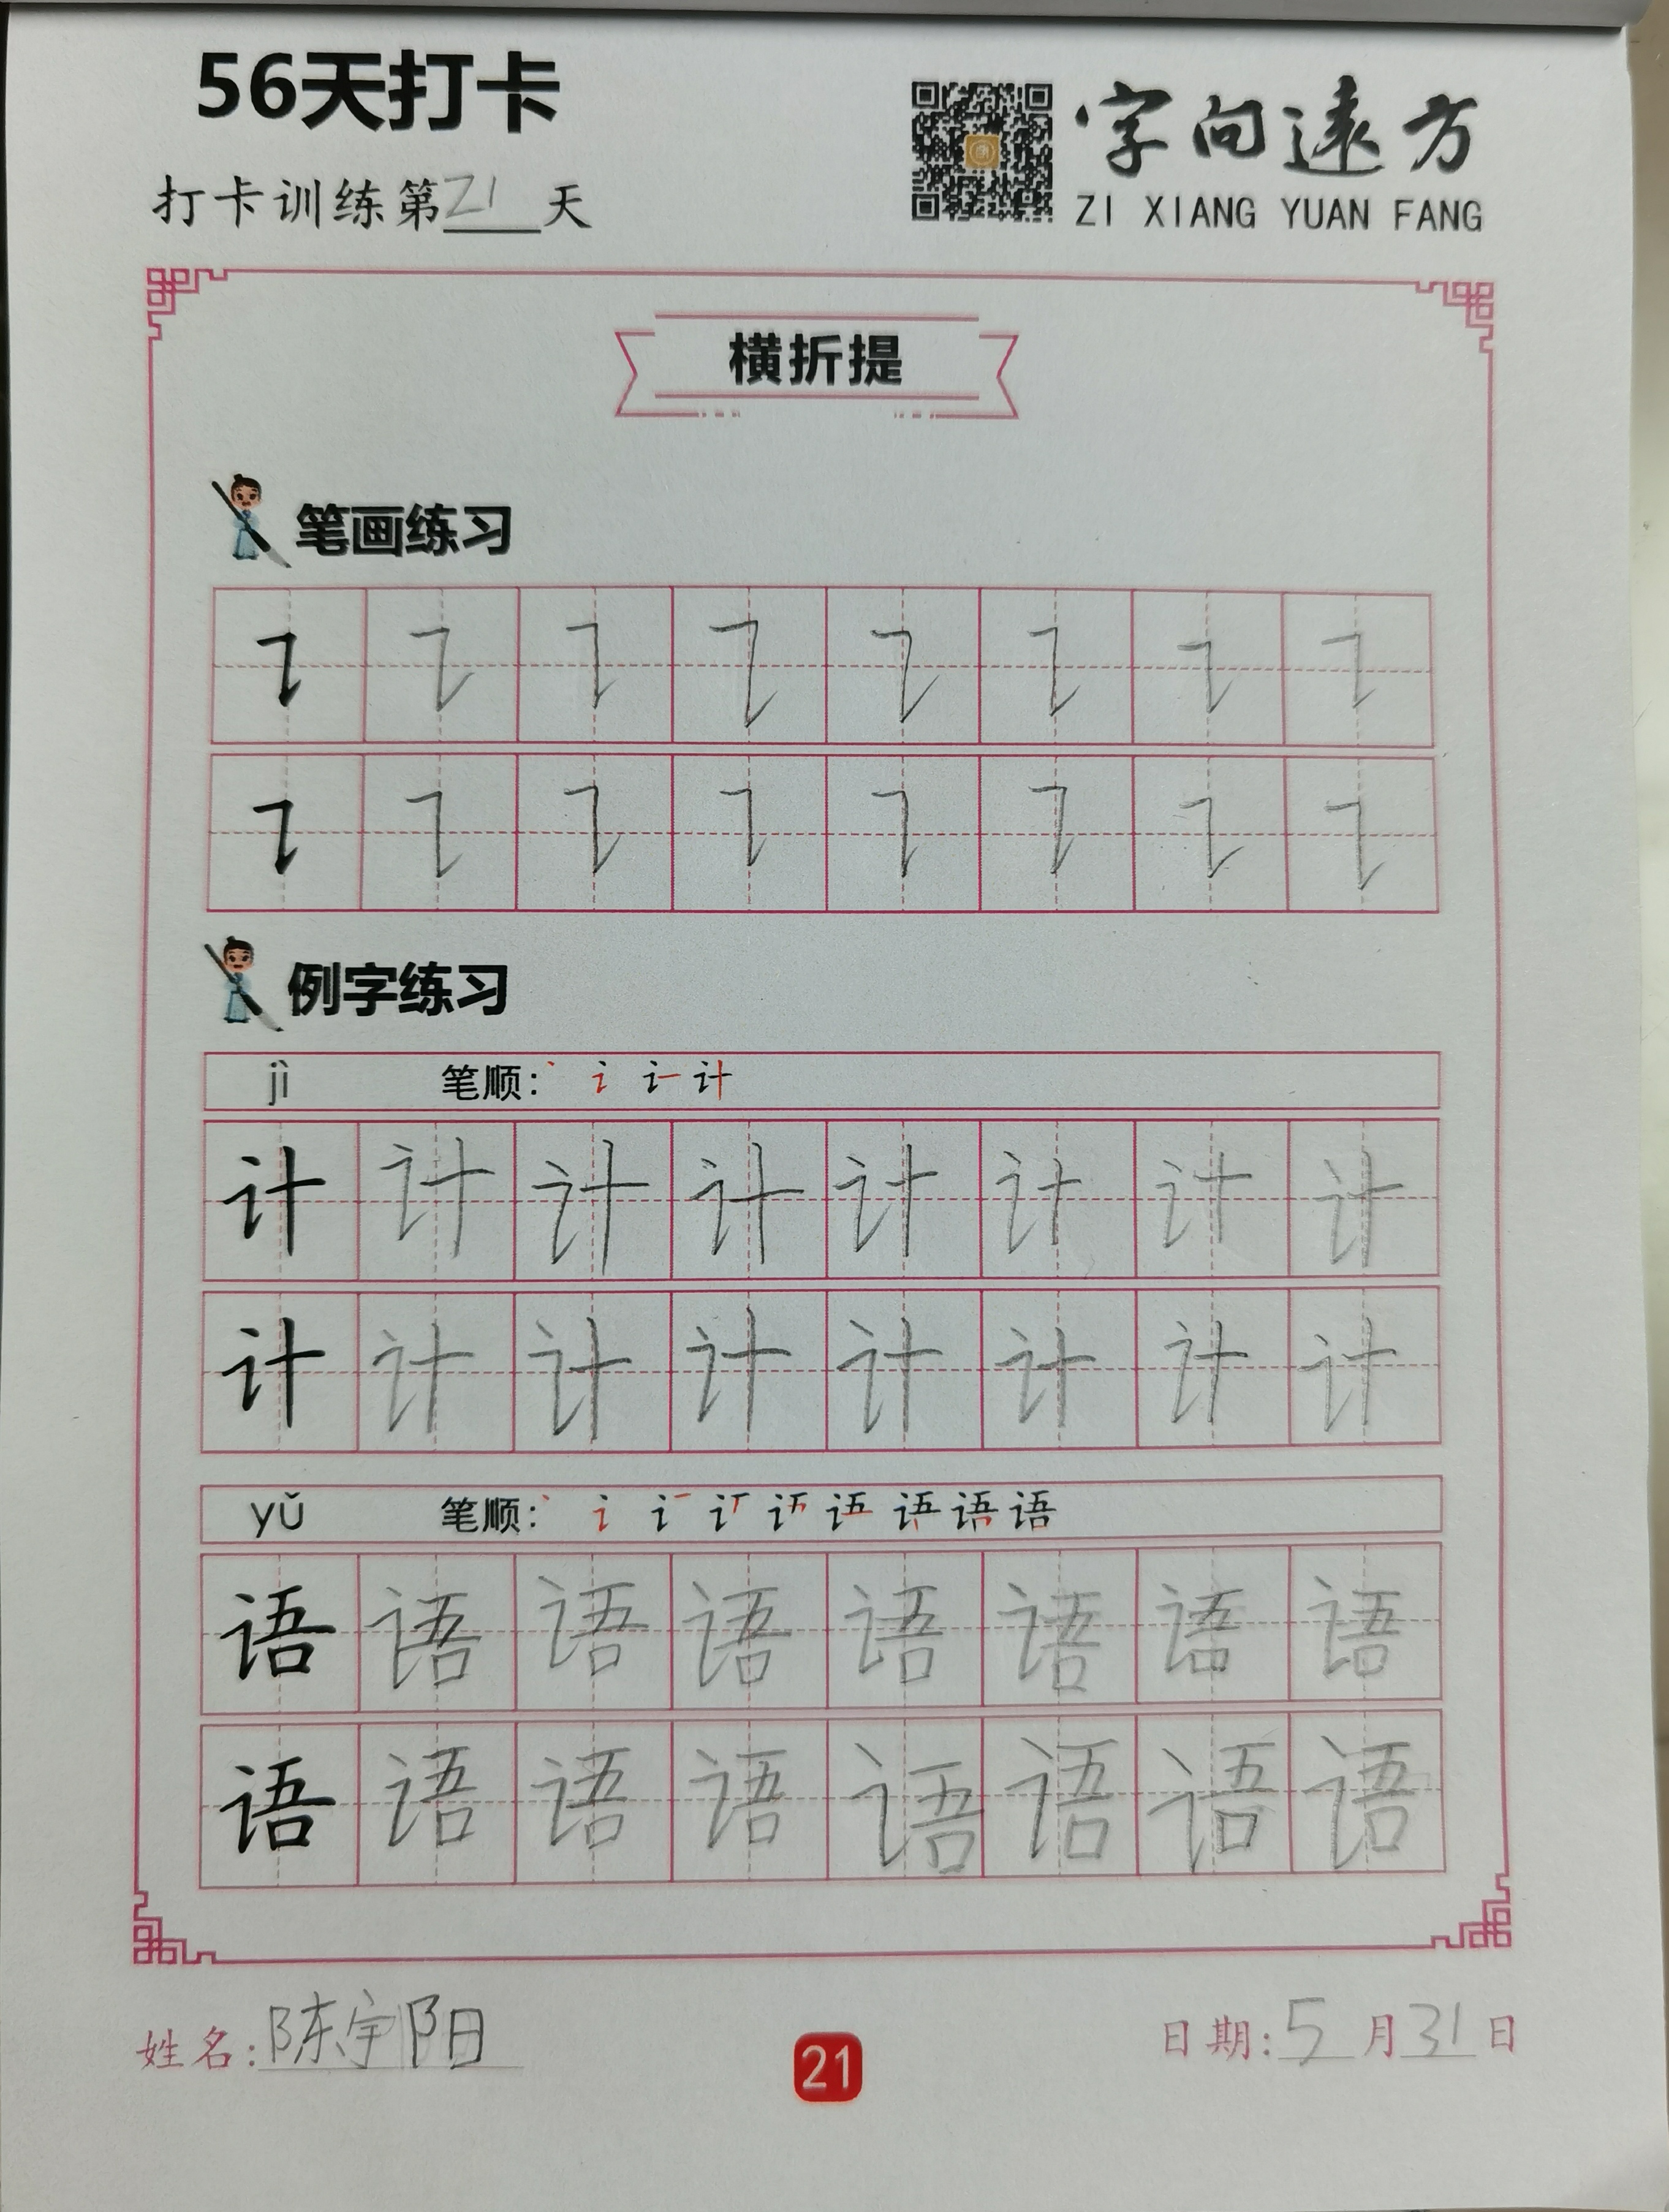 56天打卡
字向遠方
打卡训练第21天
ZI XIANG YUAN FANG
横折提
笔画练习
㇊ ㇊ ㇊ ㇊ ㇊ ㇊ ㇊ ㇊
㇊ ㇊ ㇊ ㇊ ㇊ ㇊ ㇊ ㇊
例字练习
jì 笔顺: 丶 讠 计
计 计 计 计 计 计 计 计
计 计 计 计 计 计 计 计
yǔ 笔顺: 丶 讠 语
语 语 语 语 语 语 语 语
语 语 语 语 语 语 语 语
姓名:陈宇阳 21 日期:5月31日